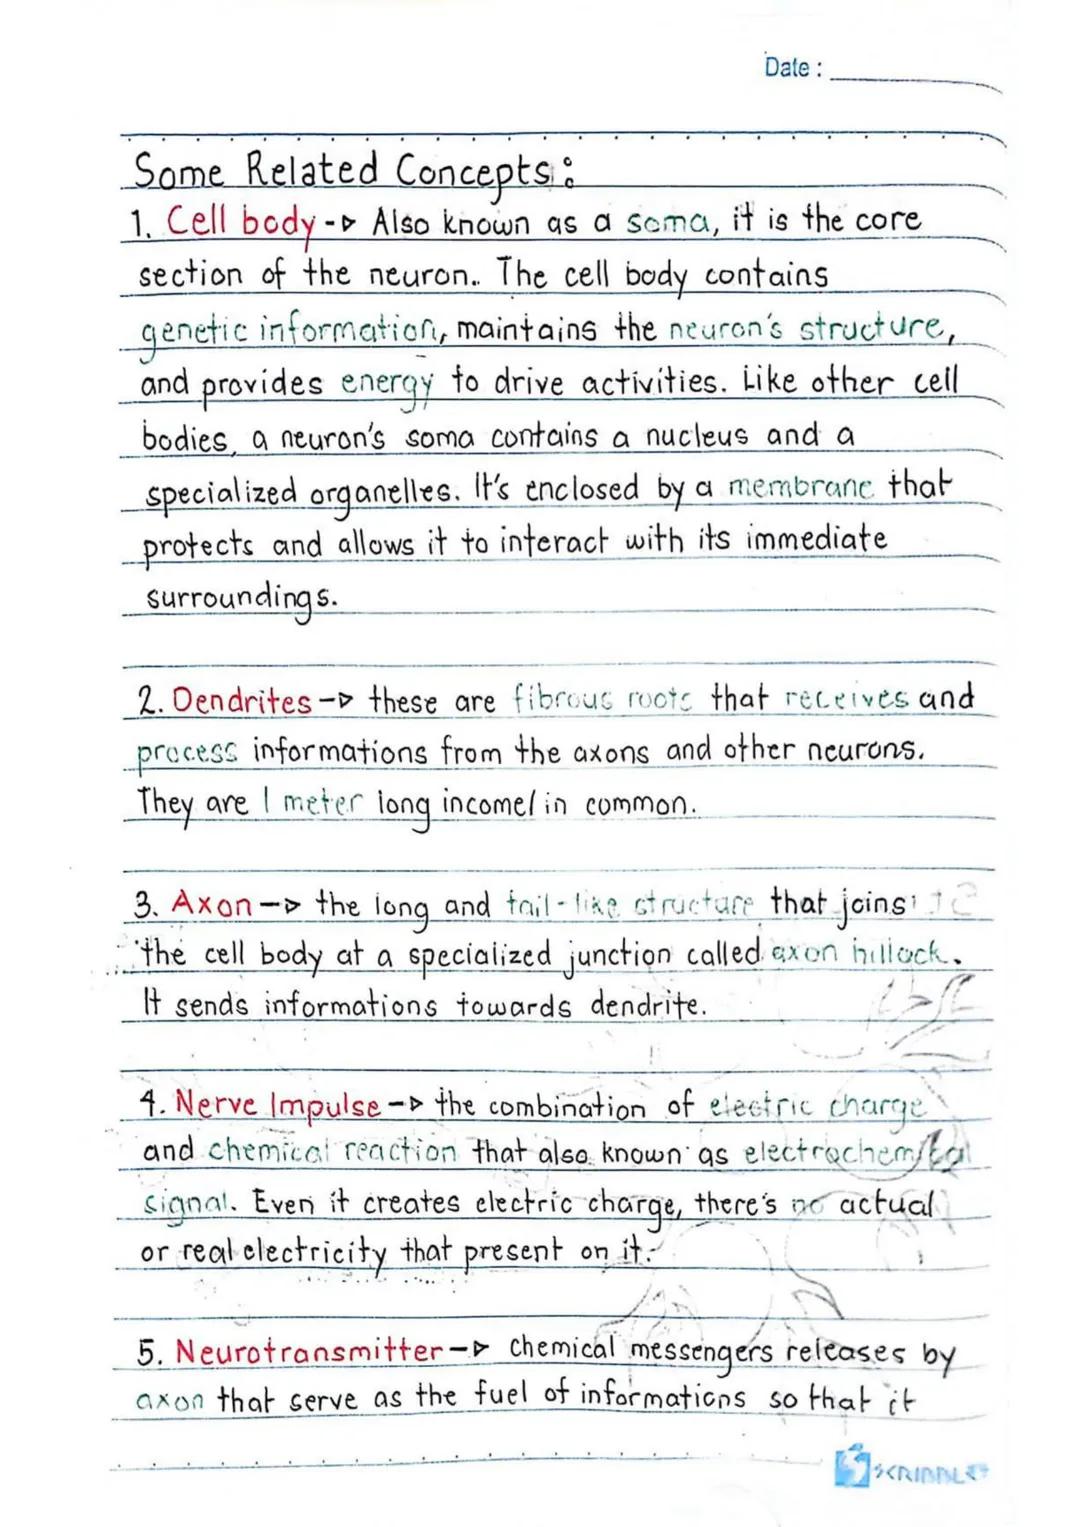 Date :
Some Related Concepts :
1. Cell body -> Also known as a soma, it is the core
section of the neuron.. The cell body contains
genetic information, maintains the neuron's structure,
and provides energy to drive activities. Like other cell
bodies, a neuron's soma contains a nucleus and a
specialized organelles. It's enclosed by a membrane that
protects and allows it to interact with its immediate
surroundings.
2. Dendrites -> these are fibrous roots that receives and
process informations from the axons and other neurons.
They are 1 meter long in common.
3. Axon -> the long and tail-like structure that joins
the cell body at a specialized junction called axon hillock.
It sends informations towards dendrite.
4. Nerve Impulse -> the combination of electric charge
and chemical reaction that also known as electrochemical
signal. Even it creates electric charge, there's no actual
or real electricity that present on it.
5. Neurotransmitter -> chemical messengers releases by
axon that serve as the fuel of informations so that it
SCRIBBLE